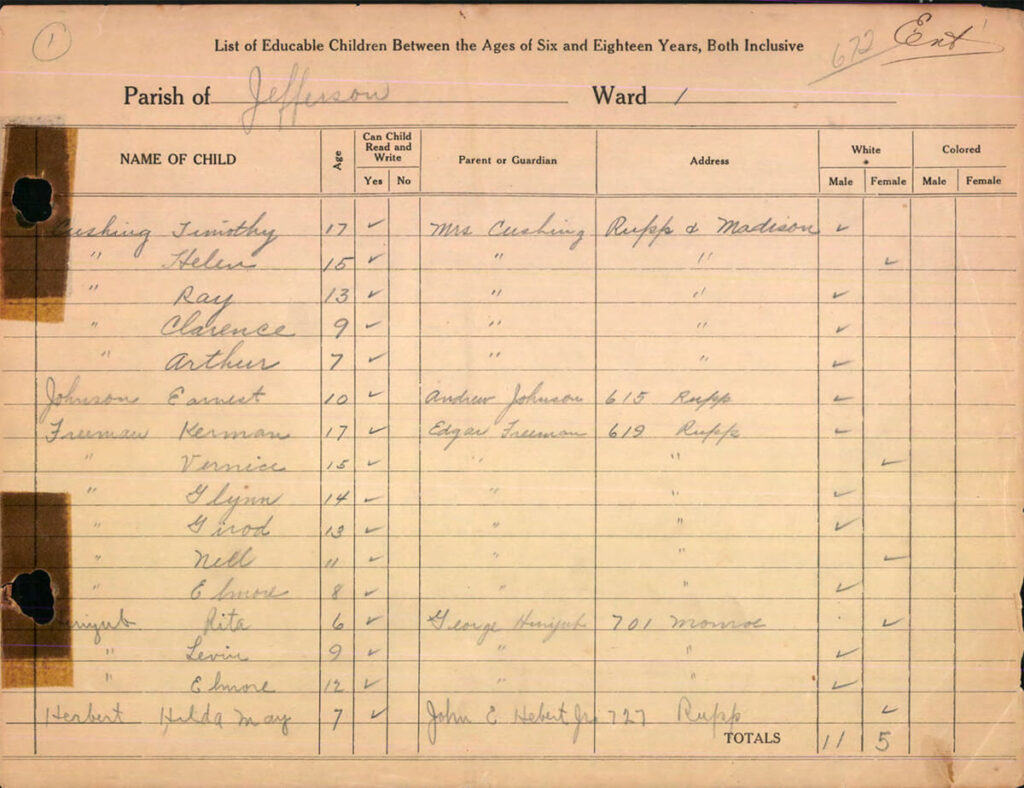 1
List of Educable Children Between the Ages of Six and Eighteen Years, Both Inclusive
672 Ent
Parish of Jefferson Ward 1
NAME OF CHILD Age Can Child Read and Write Parent or Guardian Address White Colored
Yes No Male Female Male Female
Cushing Timothy 17 ✓ Mrs Cushing Rupp & Madison ✓
" Helen 15 ✓ " " ✓
" Ray 13 ✓ " " ✓
" Clarence 9 ✓ " " ✓
" Arthur 7 ✓ " " ✓
Johnson Earnest 10 ✓ Andrew Johnson 615 Rupp ✓
Freeman Kerman 17 ✓ Edgar Freeman 619 Rupp ✓
" Vernice 15 ✓ " " ✓
" Glynn 14 ✓ " " ✓
" Girod 13 ✓ " " ✓
" Nell 11 ✓ " " ✓
" Elmore 8 ✓ " " ✓
Rita 6 ✓ George 701 Monroe ✓
" 9 ✓ " " ✓
" Elmore 12 ✓ " " ✓
Herbert Hilda May 7 ✓ John E Hebert Jr 727 Rupp ✓
TOTALS 11 5